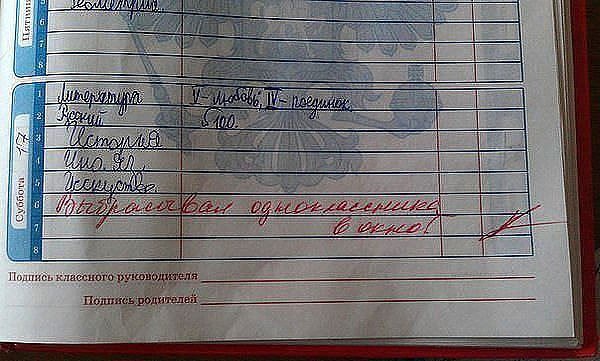 Пятни
Геометрия
6
7
8
Суббота 17
1 Литература V - любовь, IV - поединок
2 Русский §100
3 История
4 Ино. Яз.
5 Искусство
6 Выбрасывал одноклассника
7 в окно!
8
Подпись классного руководителя
Подпись родителей